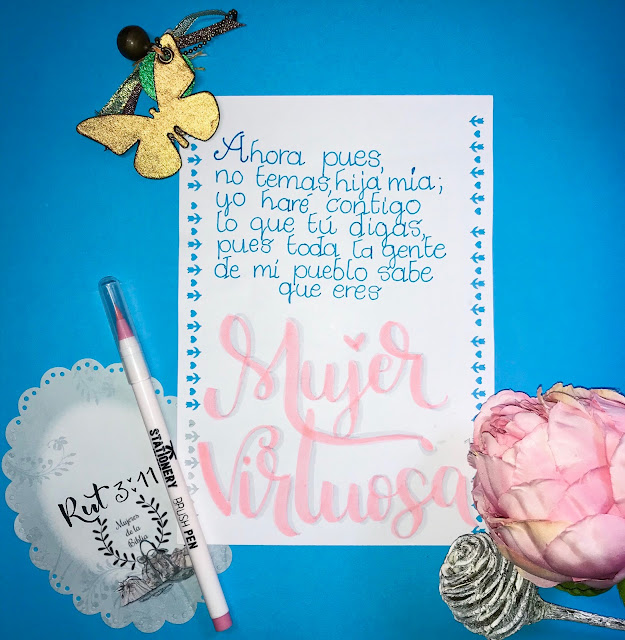 Ahora pues,
no temas, hija mía;
yo haré contigo
lo que tú digas,
pues toda la gente
de mi pueblo sabe
que eres
Mujer
Virtuosa
Rut 3:11
Mujeres
de la
Biblia
STATIONERY BRUSH PEN